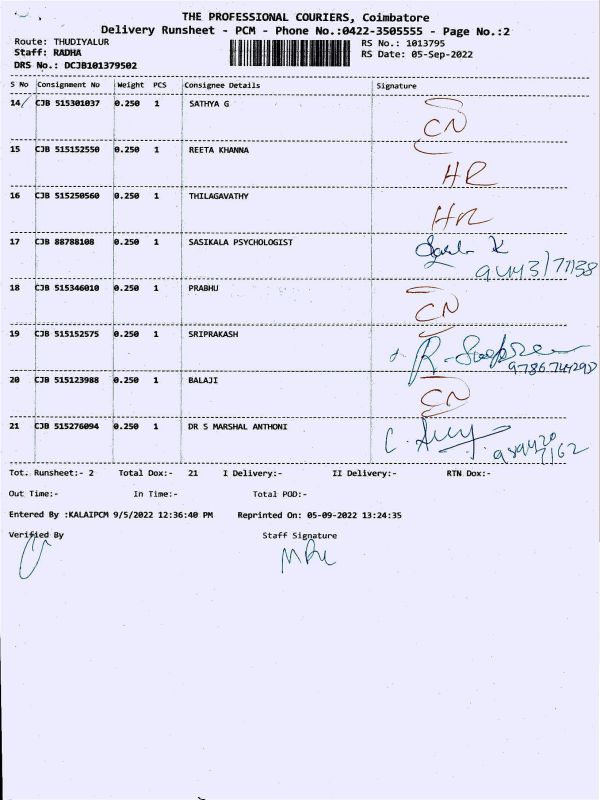 THE PROFESSIONAL COURIERS, Coimbatore
Delivery Runsheet - PCM - Phone No.:0422-3505555 - Page No.:2
Route: THUDIYALUR
Staff: RADHA
DRS No.: DCJB101379502
RS No.: 1013795
RS Date: 05-Sep-2022
S No Consignment No Weight PCS Consignee Details Signature
14 CJB 515301037 0.250 1 SATHYA G CN
15 CJB 515152550 0.250 1 REETA KHANNA HR
16 CJB 515250560 0.250 1 THILAGAVATHY HR
17 CJB 88788108 0.250 1 SASIKALA PSYCHOLOGIST
18 CJB 515346010 0.250 1 PRABHU CN
19 CJB 515152575 0.250 1 SRIPRAKASH
20 CJB 515123988 0.250 1 BALAJI CN
21 CJB 515276094 0.250 1 DR S MARSHAL ANTHONI
Tot. Runsheet:- 2 Total Dox:- 21 I Delivery:- II Delivery:- RTN Dox:-
Out Time:- In Time:- Total POD:-
Entered By :KALAIPCM 9/5/2022 12:36:40 PM Reprinted On: 05-09-2022 13:24:35
Verified By Staff Signature